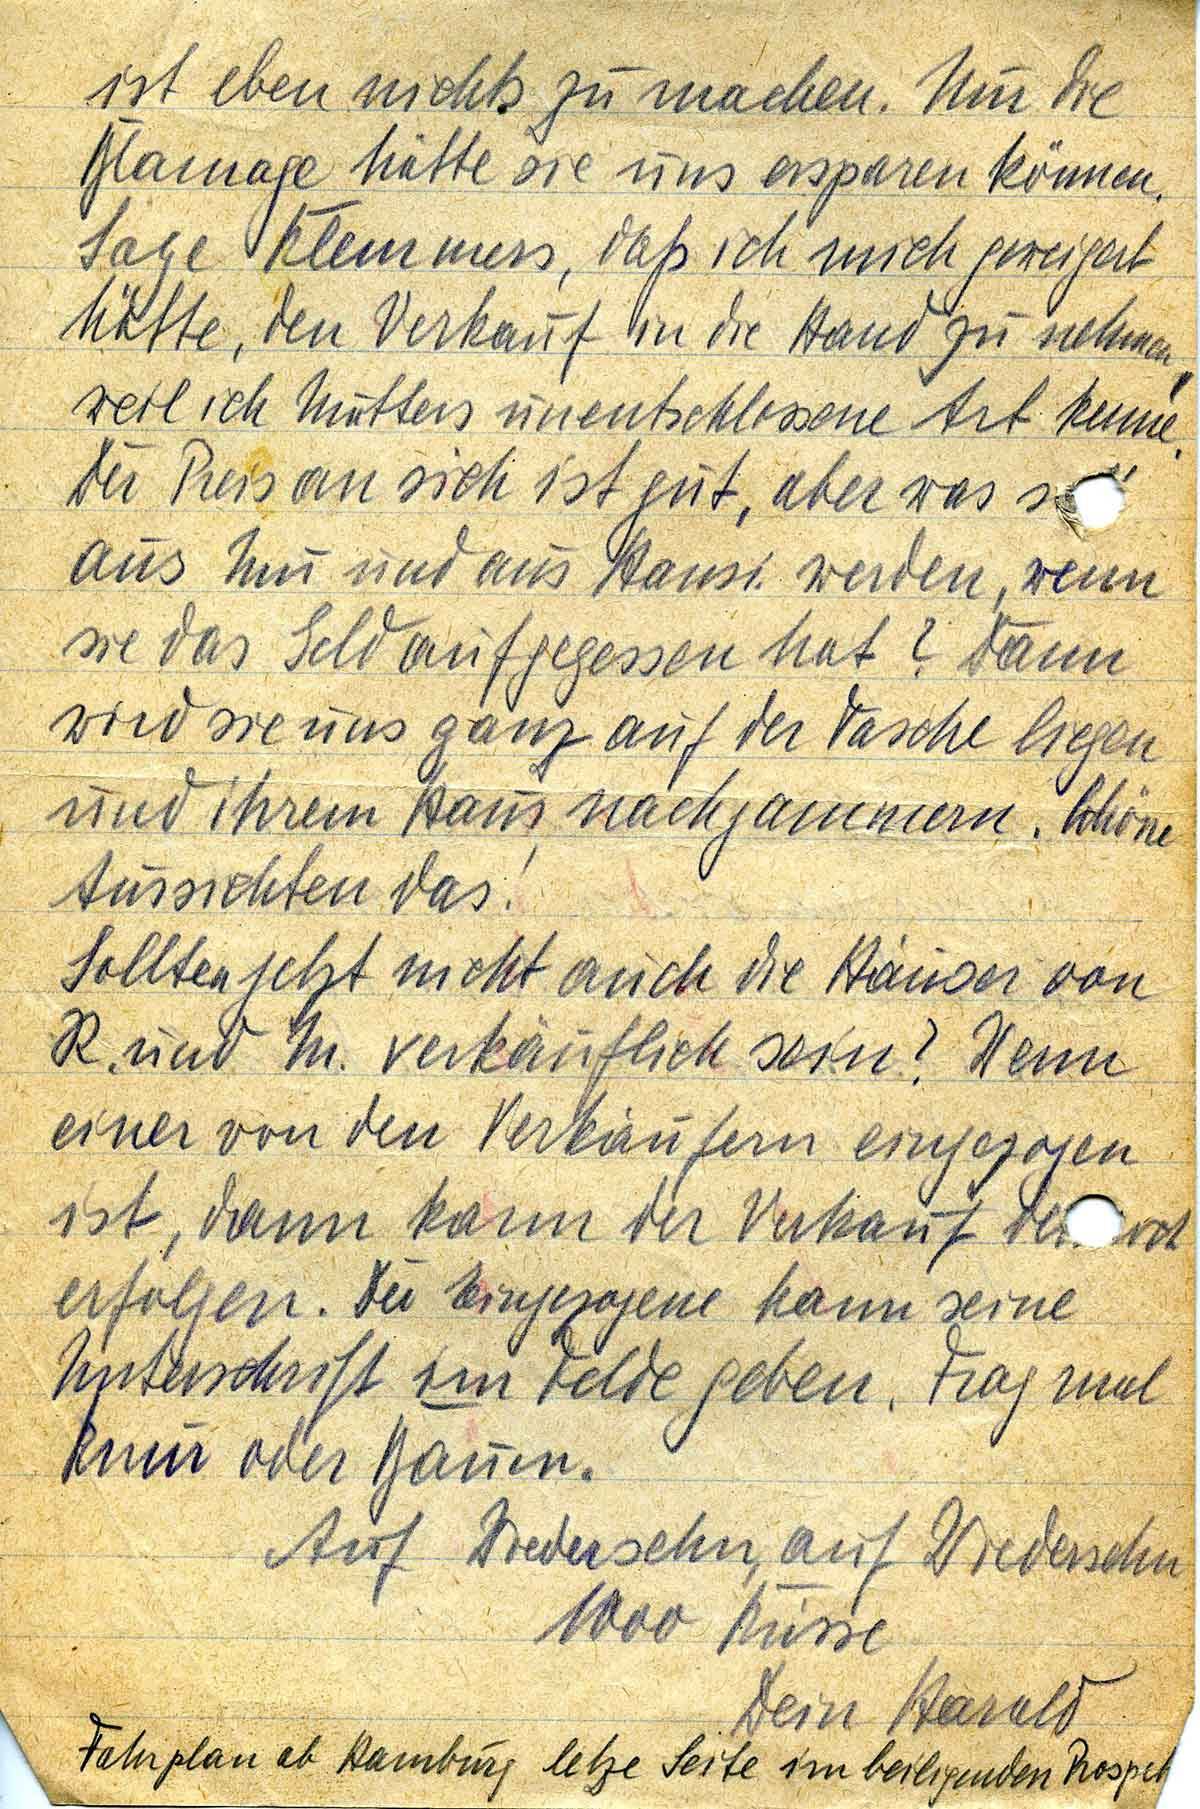 ist eben nichts zu machen. Nur die
Blamage hätte sie uns ersparen können.
Sage Klemmers, daß ich mich geweigert
hätte, den Verkauf in die Hand zu nehmen,
weil ich Mutters unentschlossene Art kenne.
Der Preis an sich ist gut, aber was
aus Mu und aus Hansi werden, wenn
sie das Geld aufgegessen hat? Dann
wird sie uns ganz auf der Tasche liegen
und ihrem Haus nachjammern. Schöne
Aussichten das!
Sollten jetzt nicht auch die Häuser von
R. und M. verkäuflich sein? Wenn
einer von den Verkäufern eingezogen
ist, dann kann der Verkauf
erfolgen. Der Eingezogene kann seine
Unterschrift im Felde geben. Frag mal
oder Baum.
Auf Wiedersehn, auf Wiedersehn
1000 Küsse
Dein Harald
Fahrplan ab Hamburg letze Seite im beiligenden Prospekt